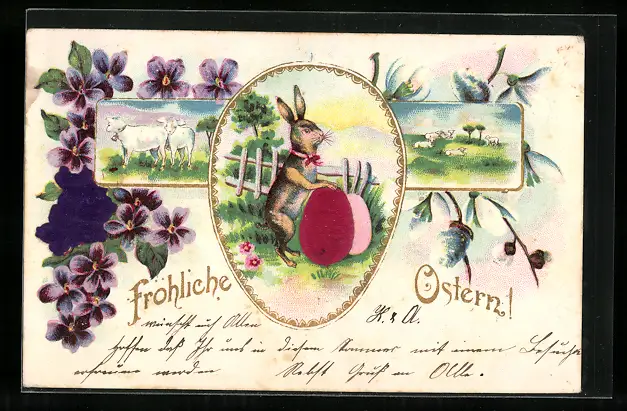 Fröhliche Ostern!
wünscht auch Allen K. & A.
hoffen daß Ihr uns in diesem Sommer mit einem Besuche
erfreuen werden Nebst Gruß an Alle.